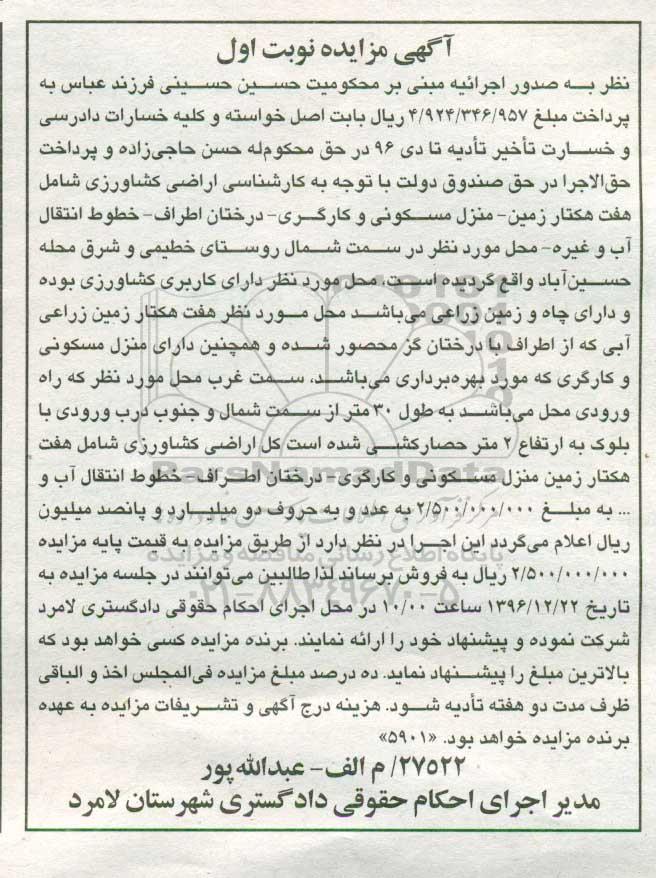 آگهی مزایده نوبت اول
نظر به صدور اجرائیه مبنی بر محکومیت حسین حسینی فرزند عباس به
پرداخت مبلغ ۴/۹۲۴/۳۴۶/۹۵۷ ریال بابت اصل خواسته و کلیه خسارات دادرسی
و خسارت تأخیر تأدیه تا دی ۹۶ در حق محکوم‌له حسن حاجی‌زاده و پرداخت
حق‌الاجرا در حق صندوق دولت با توجه به کارشناسی اراضی کشاورزی شامل
هفت هکتار زمین- منزل مسکونی و کارگری- درختان اطراف- خطوط انتقال
آب و غیره- محل مورد نظر در سمت شمال روستای خطیمی و شرق محله
حسین‌آباد واقع گردیده است، محل مورد نظر دارای کاربری کشاورزی بوده
و دارای چاه و زمین زراعی می‌باشد محل مورد نظر هفت هکتار زمین زراعی
آبی که از اطراف با درختان گز محصور شده و همچنین دارای منزل مسکونی
و کارگری که مورد بهره‌برداری می‌باشد، سمت غرب محل مورد نظر که راه
ورودی محل می‌باشد به طول ۳۰ متر از سمت شمال و جنوب درب ورودی با
بلوک به ارتفاع ۲ متر حصارکشی شده است کل اراضی کشاورزی شامل هفت
هکتار زمین منزل مسکونی و کارگری- درختان اطراف- خطوط انتقال آب و
... به مبلغ ۲/۵۰۰/۰۰۰/۰۰۰ به عدد و به حروف دو میلیارد و پانصد میلیون
ریال اعلام می‌گردد این اجرا در نظر دارد از طریق مزایده به قیمت پایه مزایده
۲/۵۰۰/۰۰۰/۰۰۰ ریال به فروش برساند لذا طالبین می‌توانند در جلسه مزایده به
تاریخ ۱۳۹۶/۱۲/۲۲ ساعت ۱۰/۰۰ در محل اجرای احکام حقوقی دادگستری لامرد
شرکت نموده و پیشنهاد خود را ارائه نمایند. برنده مزایده کسی خواهد بود که
بالاترین مبلغ را پیشنهاد نماید. ده درصد مبلغ مزایده فی‌المجلس اخذ و الباقی
ظرف مدت دو هفته تأدیه شود. هزینه درج آگهی و تشریفات مزایده به عهده
برنده مزایده خواهد بود. «۵۹۰۱»
۲۷۵۲۲/ م الف- عبدالله پور
مدیر اجرای احکام حقوقی دادگستری شهرستان لامرد
ParsNamadData
پایگاه اطلاع رسانی مناقصه و مزایده
۰۲۱-۸۸۳۴۹۶۷۰-۵